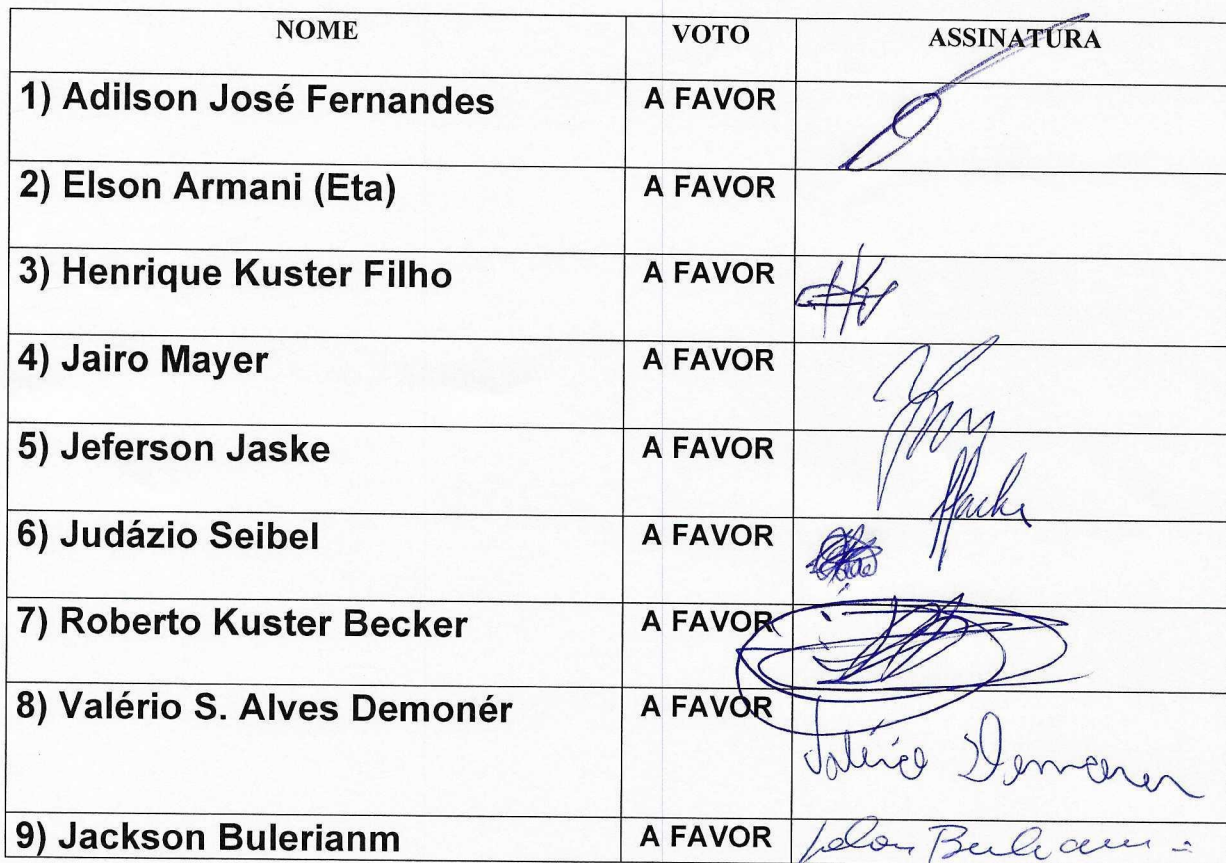 NOME VOTO ASSINATURA
1) Adilson José Fernandes A FAVOR
2) Elson Armani (Eta) A FAVOR
3) Henrique Kuster Filho A FAVOR
4) Jairo Mayer A FAVOR
5) Jeferson Jaske A FAVOR
6) Judázio Seibel A FAVOR
7) Roberto Kuster Becker A FAVOR
8) Valério S. Alves Demonér A FAVOR
Valério Demoner
9) Jackson Bulerianm A FAVOR